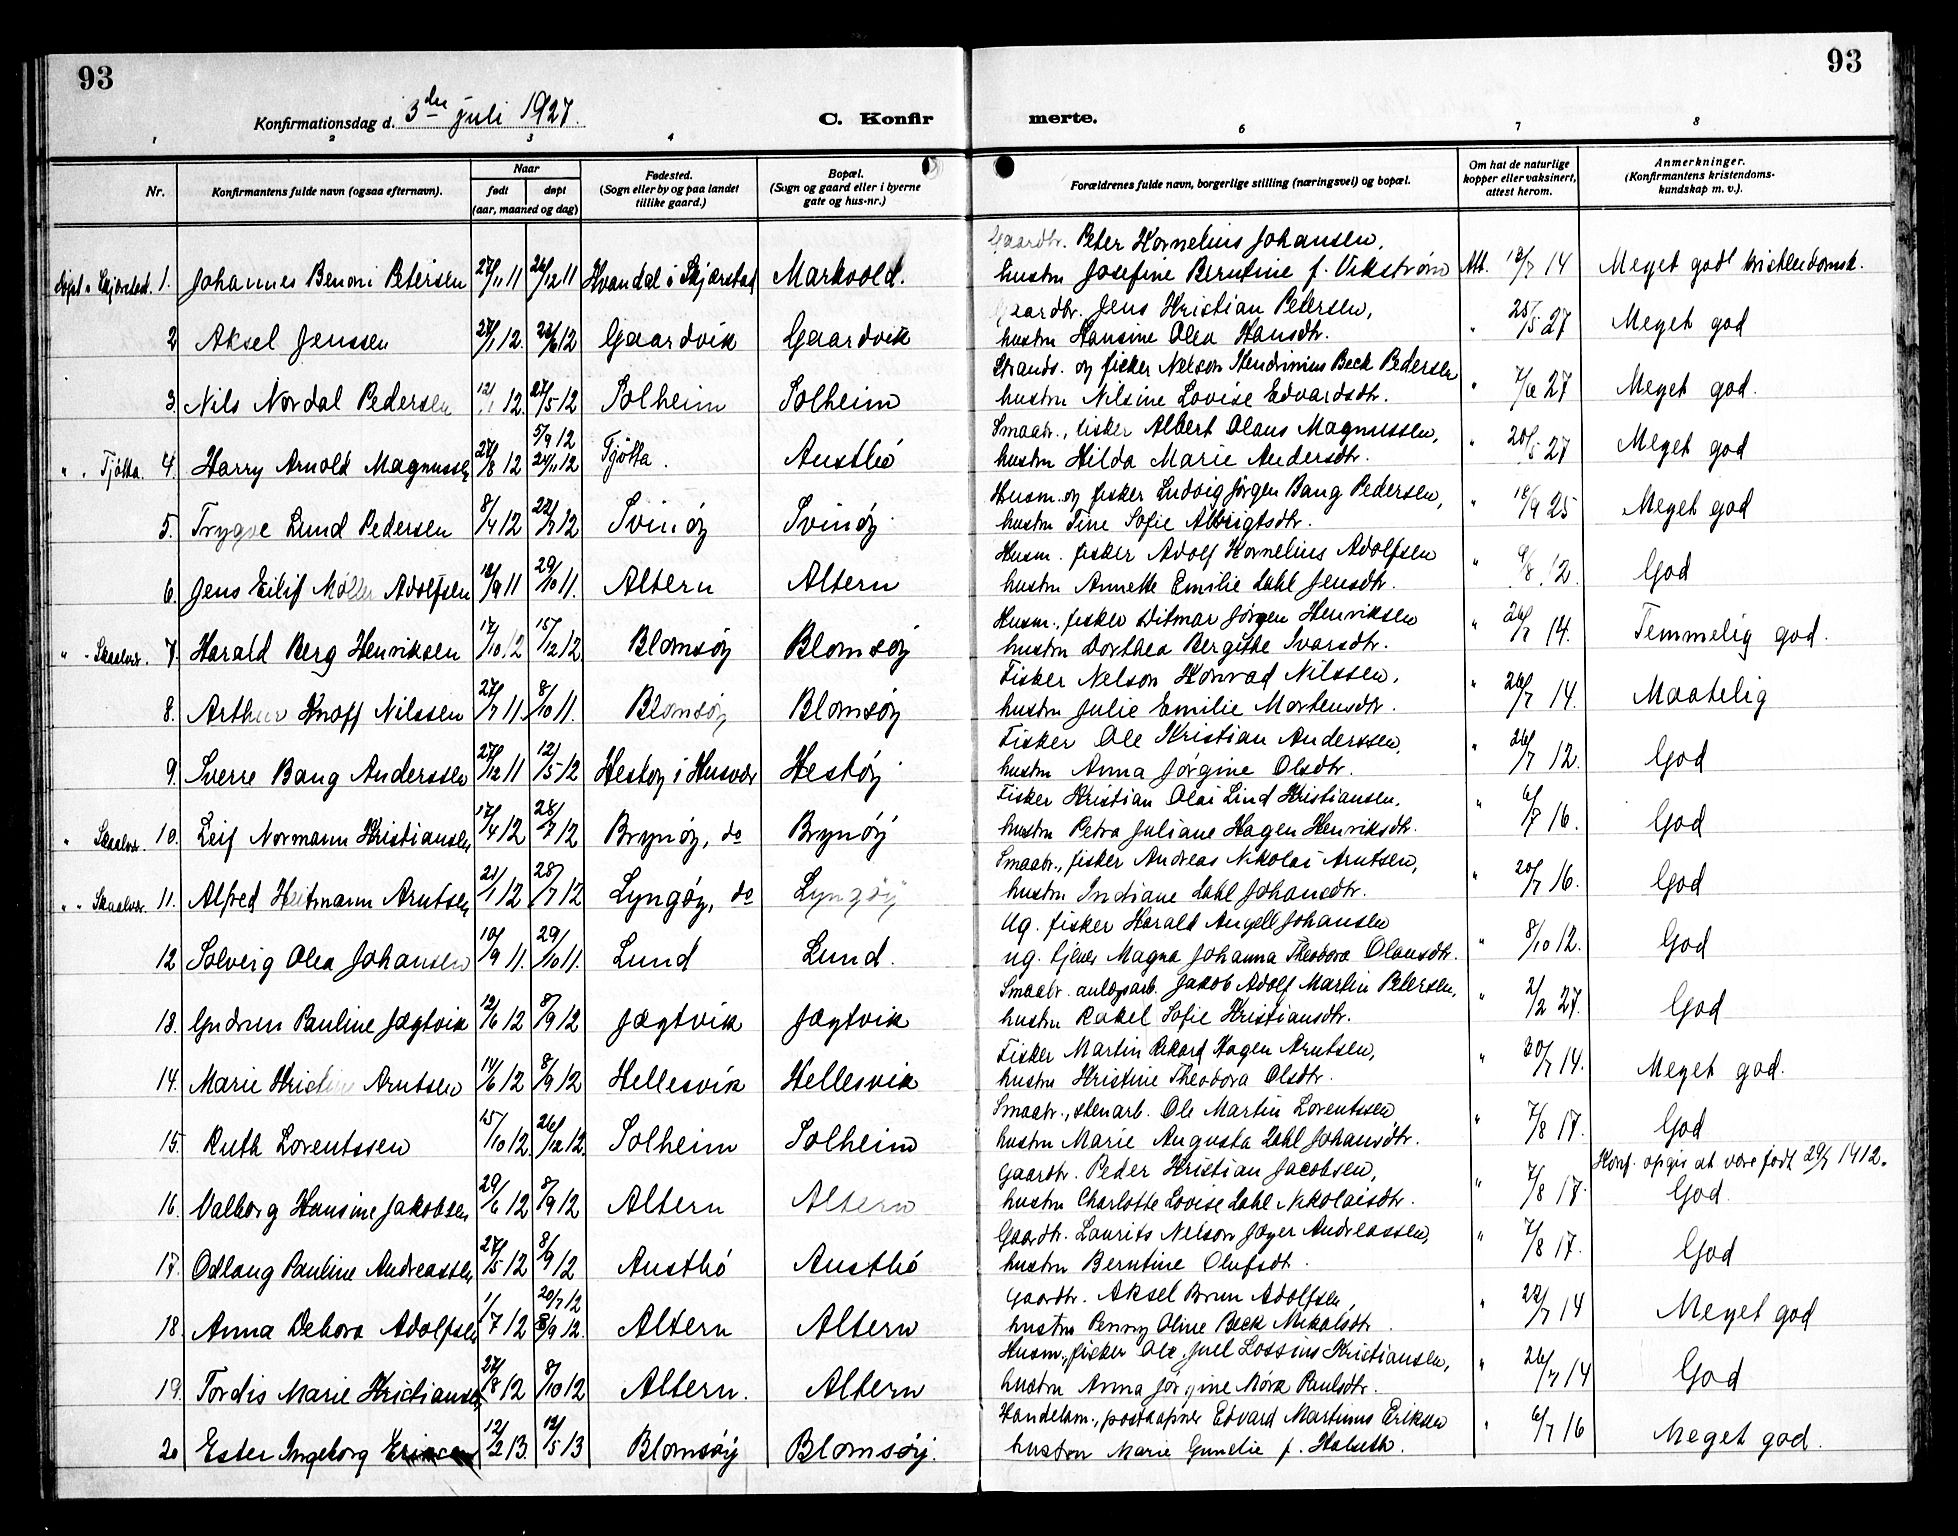 93
93
Konfirmationsdag d. 3die juli 1927.
C. Konfirmerte.
1 2 3 4 6 7 8
Nr.
Konfirmantens fulde navn (ogsaa efternavn).
Naar
født
døpt
(aar, maaned og dag)
Fødested.
(Sogn eller by og paa landet
tillike gaard.)
Bopæl.
(Sogn og gaard eller i byerne
gate og hus-nr.)
Forældrenes fulde navn, borgerlige stilling (næringsvei) og bopæl.
Om hat de naturlige
kopper eller vaksinert,
attest herom.
Anmerkninger.
(Konfirmantens kristendoms-
kundskap m. v.).
Gaardbr. Peter Kornelius Johansen,
Døpt i Skjerstad. 1. Johannes Benoni Petersen 27/11 11 26/12 11 Hvandal i Skjerstad Markvold. hustru Josefine Berntine f. Vikstrøm Att. 18/7 14 Meget god kristendomsk.
Gaardbr. Jens Kristian Petersen,
2 Aksel Jenssen 27/1 12. 23/6 12 Gaardvik Gaardvik hustru Hansine Olea Hansdtr. " 25/5 27 Meget god
Strands. og fisker Nelson Hendrinius Beck Pedersen
3 Nils Nordal Pedersen 12/1 12. 27/5 12 Solheim Solheim hustru Nilsine Lovise Edvardsdtr. " 7/6 27 Meget god.
Smaabr., fisker Albert Olaus Magnussen,
" " Tjøtta. 4. Harry Arnold Magnussen 27/8 12 5/9 12 24/11 12 Tjøtta. Austbø hustru Hilda Marie Andersdtr. " 20/5 27 Meget god
Husm. og fisker Ludvig Jørgen Bang Pedersen,
5. Trygve Lund Pedersen 8/4 12 22/7 12 Svinøy Svinøy. hustru Tine Sofie Albrigtsdtr. " 18/9 25 Meget god
Husm. fisker Adolf Kornelius Adolfsen
6. Jens Eilif Møller Adolfsen 18/9 11 29/10 11. Altern Altern hustru Annette Emilie Dahl Jensdtr. " 9/8 12. God
Husm., fisker Ditmar Jørgen Henriksen
" " Skaalvær. 7. Harald Berg Henriksen 17/10 12 15/12 12 Blomsøy Blomsøy hustru Dorthea Bergitte Ivarsdtr. " 26/7 14. Temmelig god.
Fisker Nelson Konrad Nilssen,
8. Arthur Knoff Nilssen 27/7 11. 8/10 11. Blomsøy Blomsøy hustru Julie Emilie Mortensdtr. " 26/7 14. Maatelig
Fisker Ole Kristian Anderssen,
9. Sverre Bang Anderssen 27/12 11 12/5 12 Hestøy i Husvær Hestøy. hustru Anna Jørgine Olsdtr. " 26/7 12. God
Fisker Kristian Olai Lind Kristiansen,
" Skaalvær. 10. Leif Normann Kristiansen 17/4 12 28/7 12 Brynøy, do Brynøy hustru Petra Juliane Hagen Henriksdtr. " 6/7 16. God
Smaabr., fisker Andreas Nikolai Arntsen,
" " Skaalvær. 11. Alfred Heitmann Arntsen 21/1 12 28/7 12 Lyngøy, do Lyngøy hustru Indiane Dahl Johansdtr. " 20/7 16. God
Ug. fisker Harald Angell Johansen
12 Solveig Olea Johansen 10/9 11. 29/10 11. Lund Lund. ug. tjener Magna Johanna Theodora Olausdtr. " 8/10 12. God
Smaabr. anlegsarb. Jakob Adolf Martin Petersen,
13. Gudrun Pauline Jægtvik 12/6 12 8/9 12 Jægtvik Jægtvik hustru Rakel Sofie Kristiansdtr. " 2/2 27. God
Fisker Martin Rikard Hagen Arntsen,
14. Marie Kristine Arntsen 14/6 12 8/9 12 Hellesvik Hellesvik hustru Kristine Theodora Olsdtr. " 20/7 14. Meget god.
Smaabr., stenarb. Ole Martin Lorentssen
15. Ruth Lorentssen 15/10 12. 26/12 12. Solheim Solheim hustru Marie Augusta Dahl Johansdtr. " 7/8 17. God
Gaardbr. Peder Kristian Jacobsen, Konf. opgis at være født 29/7 1912.
16. Valborg Hansine Jakobsen 29/6 12 8/9 12 Altern Altern hustru Charlotte Lovise Dahl Nikolaisdtr. " 7/8 17. God.
Gaardbr. Laurits Nelson Jæger Andreassen,
17. Odlaug Pauline Andreassen 27/5 12 8/9 12 Austbø Austbø hustru Berntine Olufsdtr. " 7/8 17. God
Gaardbr. Aksel Brun Adolfsen,
18. Anna Debora Adolfsen 1/7 12 20/7 12 8/9 12. Altern Altern hustru Penny Oline Beck Nikolsdtr. " 22/7 14 Meget god
Husm., fisker Ole Juel Lossius Kristiansen,
19. Tordis Marie Kristiansen 27/8 12 8/10 12 Altern. Altern hustru Anna Jørgine Mørk Paulsdtr. " 26/7 14 God
Handelsm., postaapner Edvard Martinus Eriksen
20 Ester Ingeborg Eriksen 12/2 13. 12/5 13 Blomsøy Blomsøy. hustru Marie Gunelie f. Halseth. " 6/7 16 Meget god.